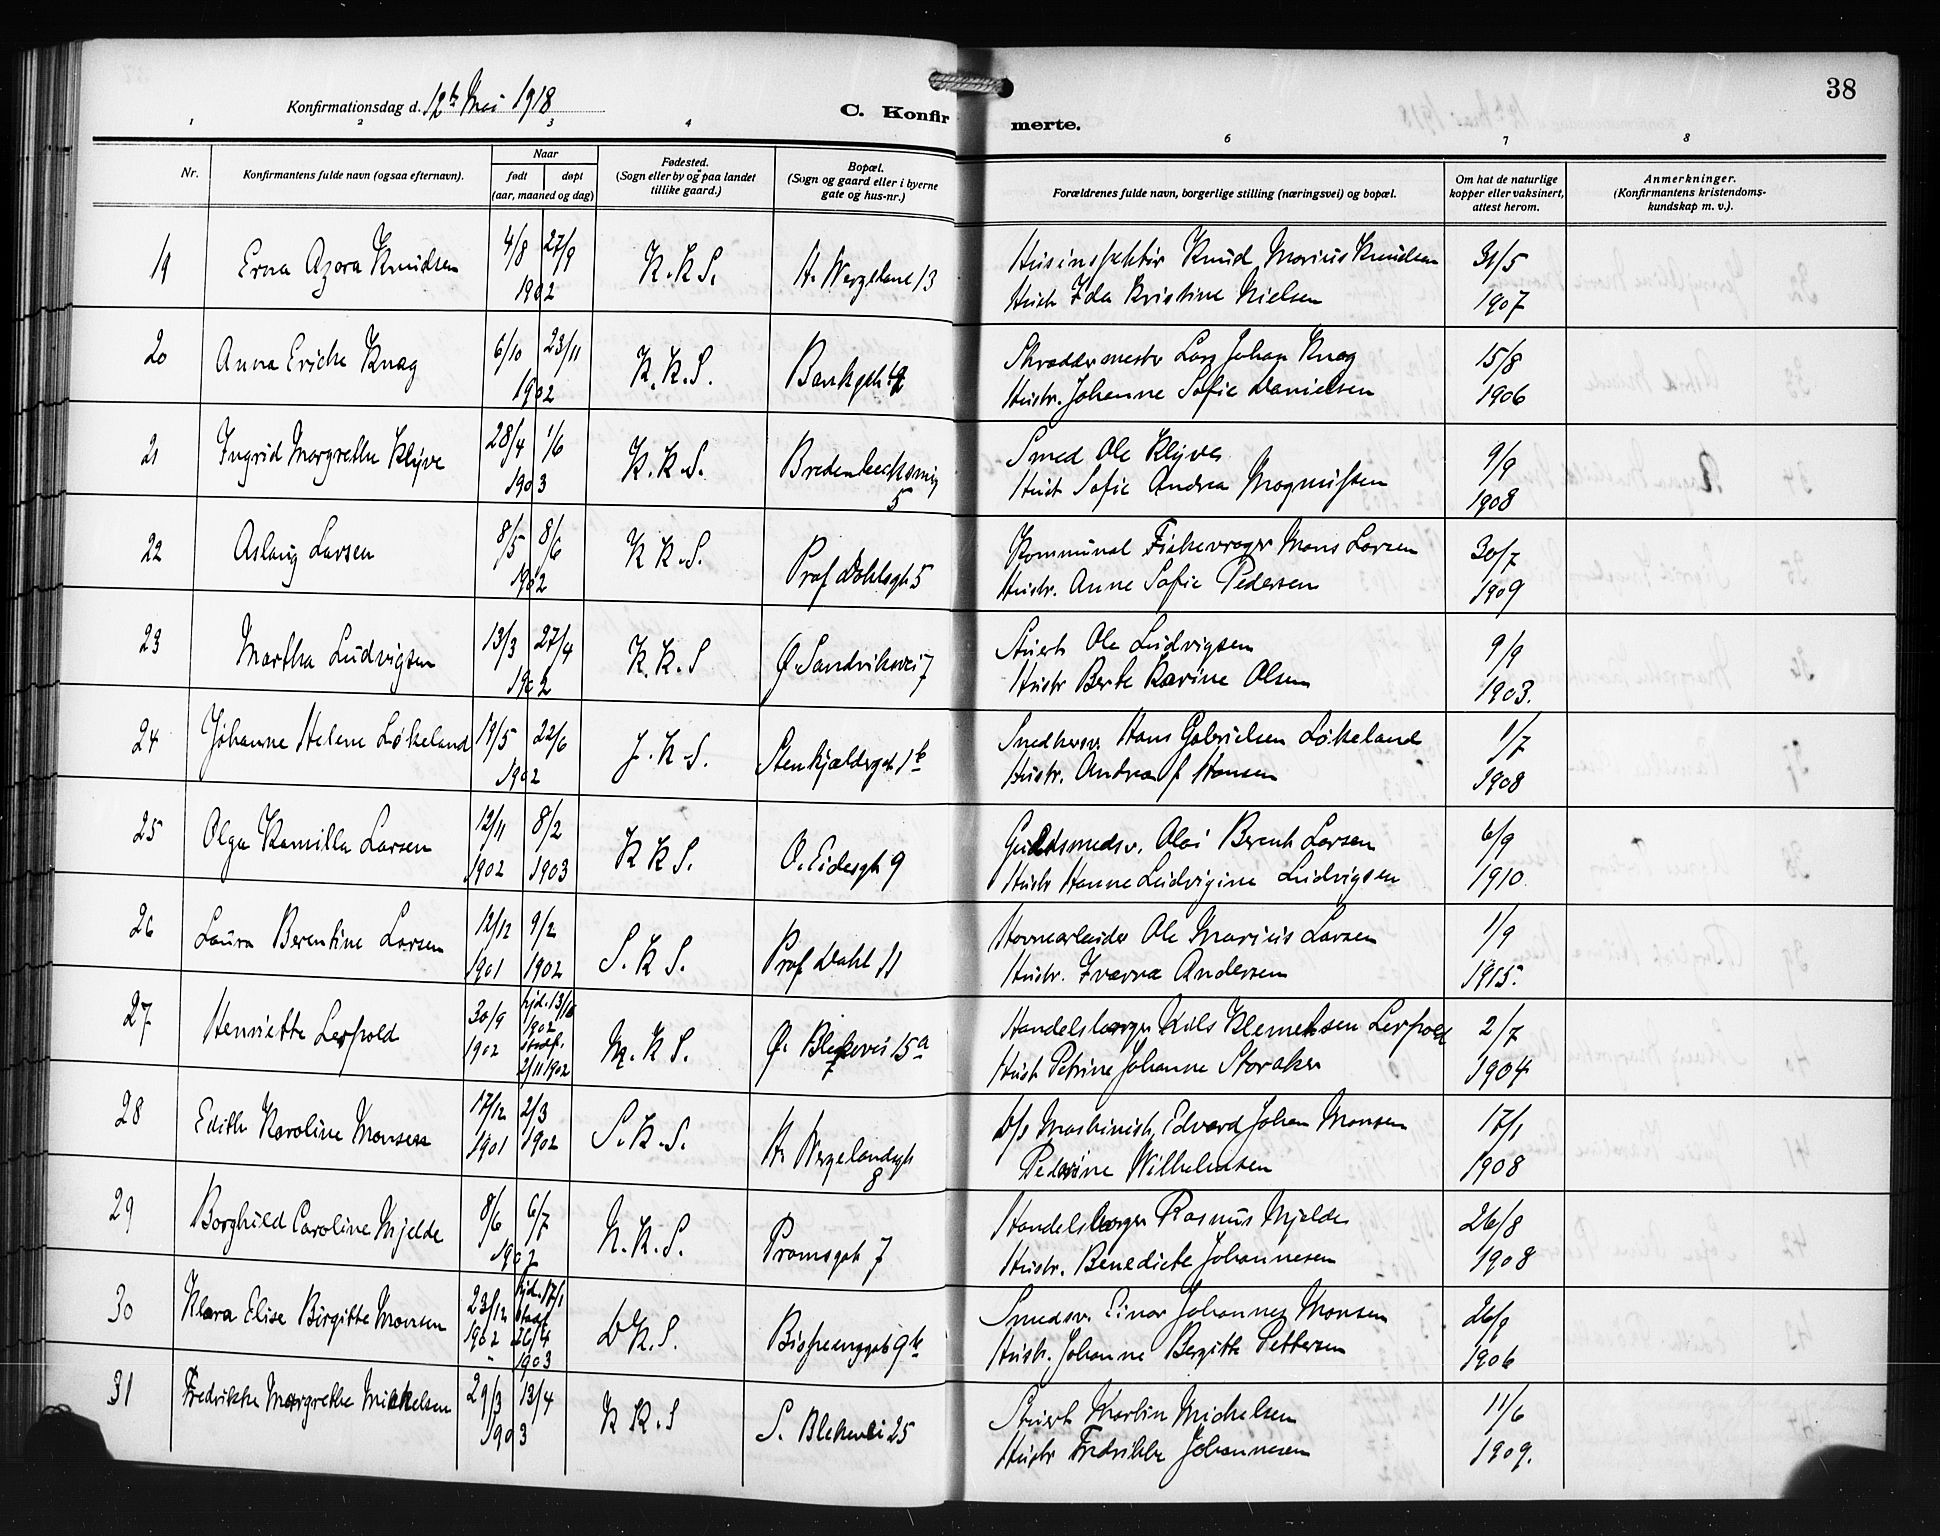 38
Konfirmationsdag d. 12te Mai 1918
C. Konfirmerte.
1 2 3 4 6 7 8
Nr.
Konfirmantens fulde navn (ogsaa efternavn).
Naar
født døpt
(aar, maaned og dag)
Fødested.
(Sogn eller by og paa landet
tillike gaard.)
Bopæl.
(Sogn og gaard eller i byerne
gate og hus-nr.)
Forældrenes fulde navn, borgerlige stilling (næringsvei) og bopæl.
Om hat de naturlige
kopper eller vaksinert,
attest herom.
Anmerkninger.
(Konfirmantens kristendoms-
kundskap m. v.).
19 Erna Azora Knudsen 4/8 27/9 1902 K.K.S. H. Wergeland 13
Husinspektør Knud Marius Knudsen 31/5
Hustr Ida Kristine Nielsen 1907
20 Anna Ericka Knag 6/10 23/11 1902 K.K.S. Bankgt.
Skræddermestr Lars Johan Knag 15/8
Hustr. Johanne Sofie Danielsen 1906
21 Ingrid Margrethe Kleive 28/4 1/6 1903 K.K.S. Bredenbecksmug 5
Smed Ole Kleive 9/9
Hustr Sofie Andrea Magnussen 1908
22 Aslaug Larsen 8/5 8/6 1902 K K.S. Prof Dahlsgt 5
Kommunal Fiskevrager Mons Larsen 30/7
Hustr. Anne Sofie Pedersen 1909
23 Martha Ludvigsen 13/3 27/4 1902 K.K.S Ø. Sandviksvei 7
Stuert Ole Ludvigsen 9/9
Hustr Berte Karine Olsen 1903.
24 Johanne Helene Løkeland 11/5 22/6 1902 J.K.S. Stenkjeldergt 1b
Snedkersv. Hans Gabrielsen Løkeland 1/7
Hustr. Andrea f Hansen 1908
25 Olga Kamilla Larsen 12/11 1902 8/2 1903 K K S. O. Eidesgt 9
Guldsmedsv. Olai Berent Larsen 6/9
Hustr Hanne Ludvigine Ludvigsen 1910
26 Laura Berentine Larsen 12/12 1901 9/2 1902 S.K S. Prof Dahl 11
Havnearbeider Ole Marius Larsen 1/9
Hustr. Ivarna Andersen 1915.
27 Henriette Lerpold 30/9 1902 hjd. 13/10 1902 stadf. 2/11 1902 M.K S. Ø. Blekevei 15a
Handelsborger Nils Klementsen Lerpold 2/7
Hustr Petrine Johanne Storaker 1904
28 Edith Karoline Monsen 17/12 1901 2/3 1902 S.K.S. H. Wergelandsgt 8
D/s Maskinist, Edvard Johan Monsen 17/1
Pedrine Wilhelmsen 1908
29 Borghild Caroline Mjelde 8/6 6/7 1902 N.K.S. Pramsgt 7
Handelsborger Rasmus Mjelde 26/8
Hustr. Benedicte Johannesen 1908
30 Klara Elise Birgitte Monsen 23/12 1902 hjd. 17/1 stadf 26/4 1903 DK.S. Bispeenggt 9b
Smedsv. Einar Johannes Monsen 26/9
Hustr. Johanne Bergitte Pettersen 1906
31 Fredrikke Margrethe Mickelsen 29/3 13/4 1903 K K.S S. Blekevei 25
Stuert Martin Michelsen 11/6
Hustr Fredrikke Johannesen 1909.